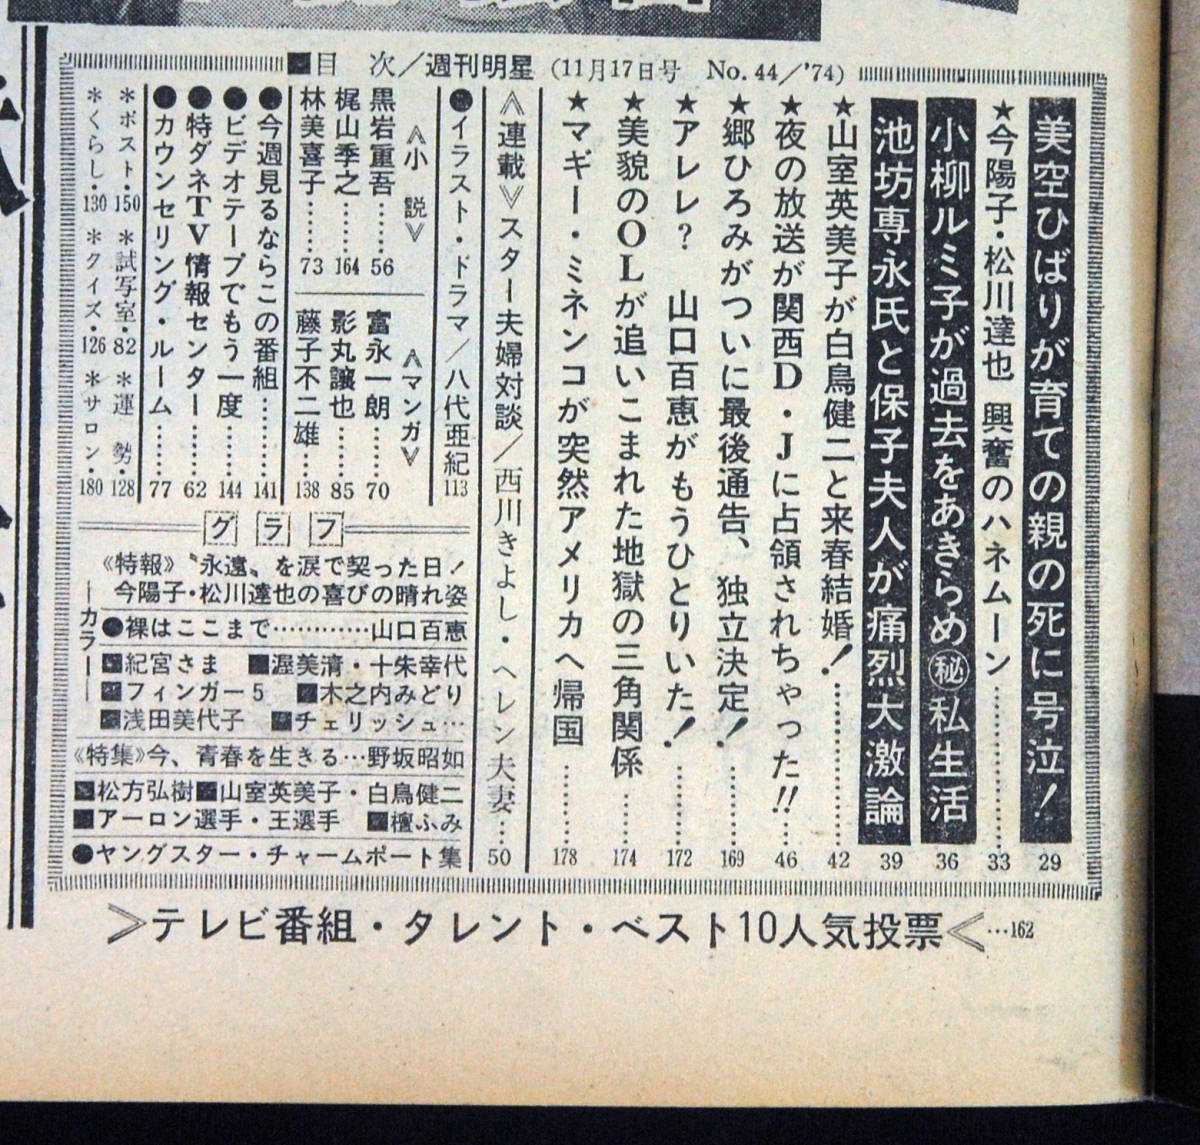 ■目　次／週刊明星 (11月17日号　No.44／'74)
美空ひばりが育ての親の死に号泣！ 29
★今陽子・松川達也　興奮のハネムーン……… 33
小柳ルミ子が過去をあきらめ㊙私生活 36
池坊専永氏と保子夫人が痛烈大激論 39
★山室英美子が白鳥健二と来春結婚！……… 42
★夜の放送が関西D・Jに占領されちゃった!!… 46
★郷ひろみがついに最後通告、独立決定！…… 169
★アレレ？　山口百恵がもうひとりいた！…… 172
★美貌のOLが追いこまれた地獄の三角関係…… 174
★マギー・ミネンコが突然アメリカへ帰国…… 178
《連載》スター夫婦対談／西川きよし・ヘレン夫妻… 50
●イラスト・ドラマ／八代亜紀 113
《小　説》
黒岩重吾…… 56
梶山季之…… 164
林美喜子…… 73
《マンガ》
富永一朗…… 70
影丸譲也…… 85
藤子不二雄 138
●今週見るならこの番組…… 141
●ビデオテープでもう一度…… 144
●特ダネTV情報センター…… 62
●カウンセリング・ルーム…… 77
＊ポスト・150　＊試写室・82　＊運　勢・128
＊くらし・130　＊クイズ・126　＊サロン・180
グラフ
カラー
《特報》〝永遠〟を涙で契った日！
今陽子・松川達也の喜びの晴れ姿
●裸はここまで…………山口百恵
■紀宮さま　■渥美清・十朱幸代
■フィンガー5　■木之内みどり
■浅田美代子　■チェリッシュ…
《特集》今、青春を生きる…野坂昭如
■松方弘樹■山室英美子・白鳥健二
■アーロン選手・王選手　■檀ふみ
●ヤングスター・チャームポート集
≫テレビ番組・タレント・ベスト10人気投票≪…162